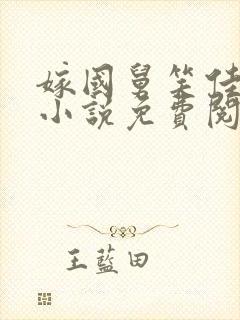 嫁國舅笑佳
小說免費閱
王藍田